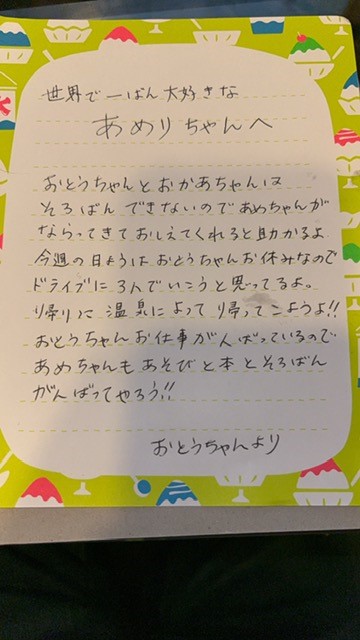 世界で一ばん大好きな
あめりちゃんへ
おとうちゃんとおかあちゃんは
そろばんできないのであめちゃんが
ならってきておしえてくれると助かるよ
今週の日ようはおとうちゃんお休みなので
ドライブに3人でいこうと思ってるよ。
帰りに温泉によって帰ってこようよ!!
おとうちゃんお仕事がんばっているので
あめちゃんもあそびと本とそろばん
がんばってやろう!!
おとうちゃんより